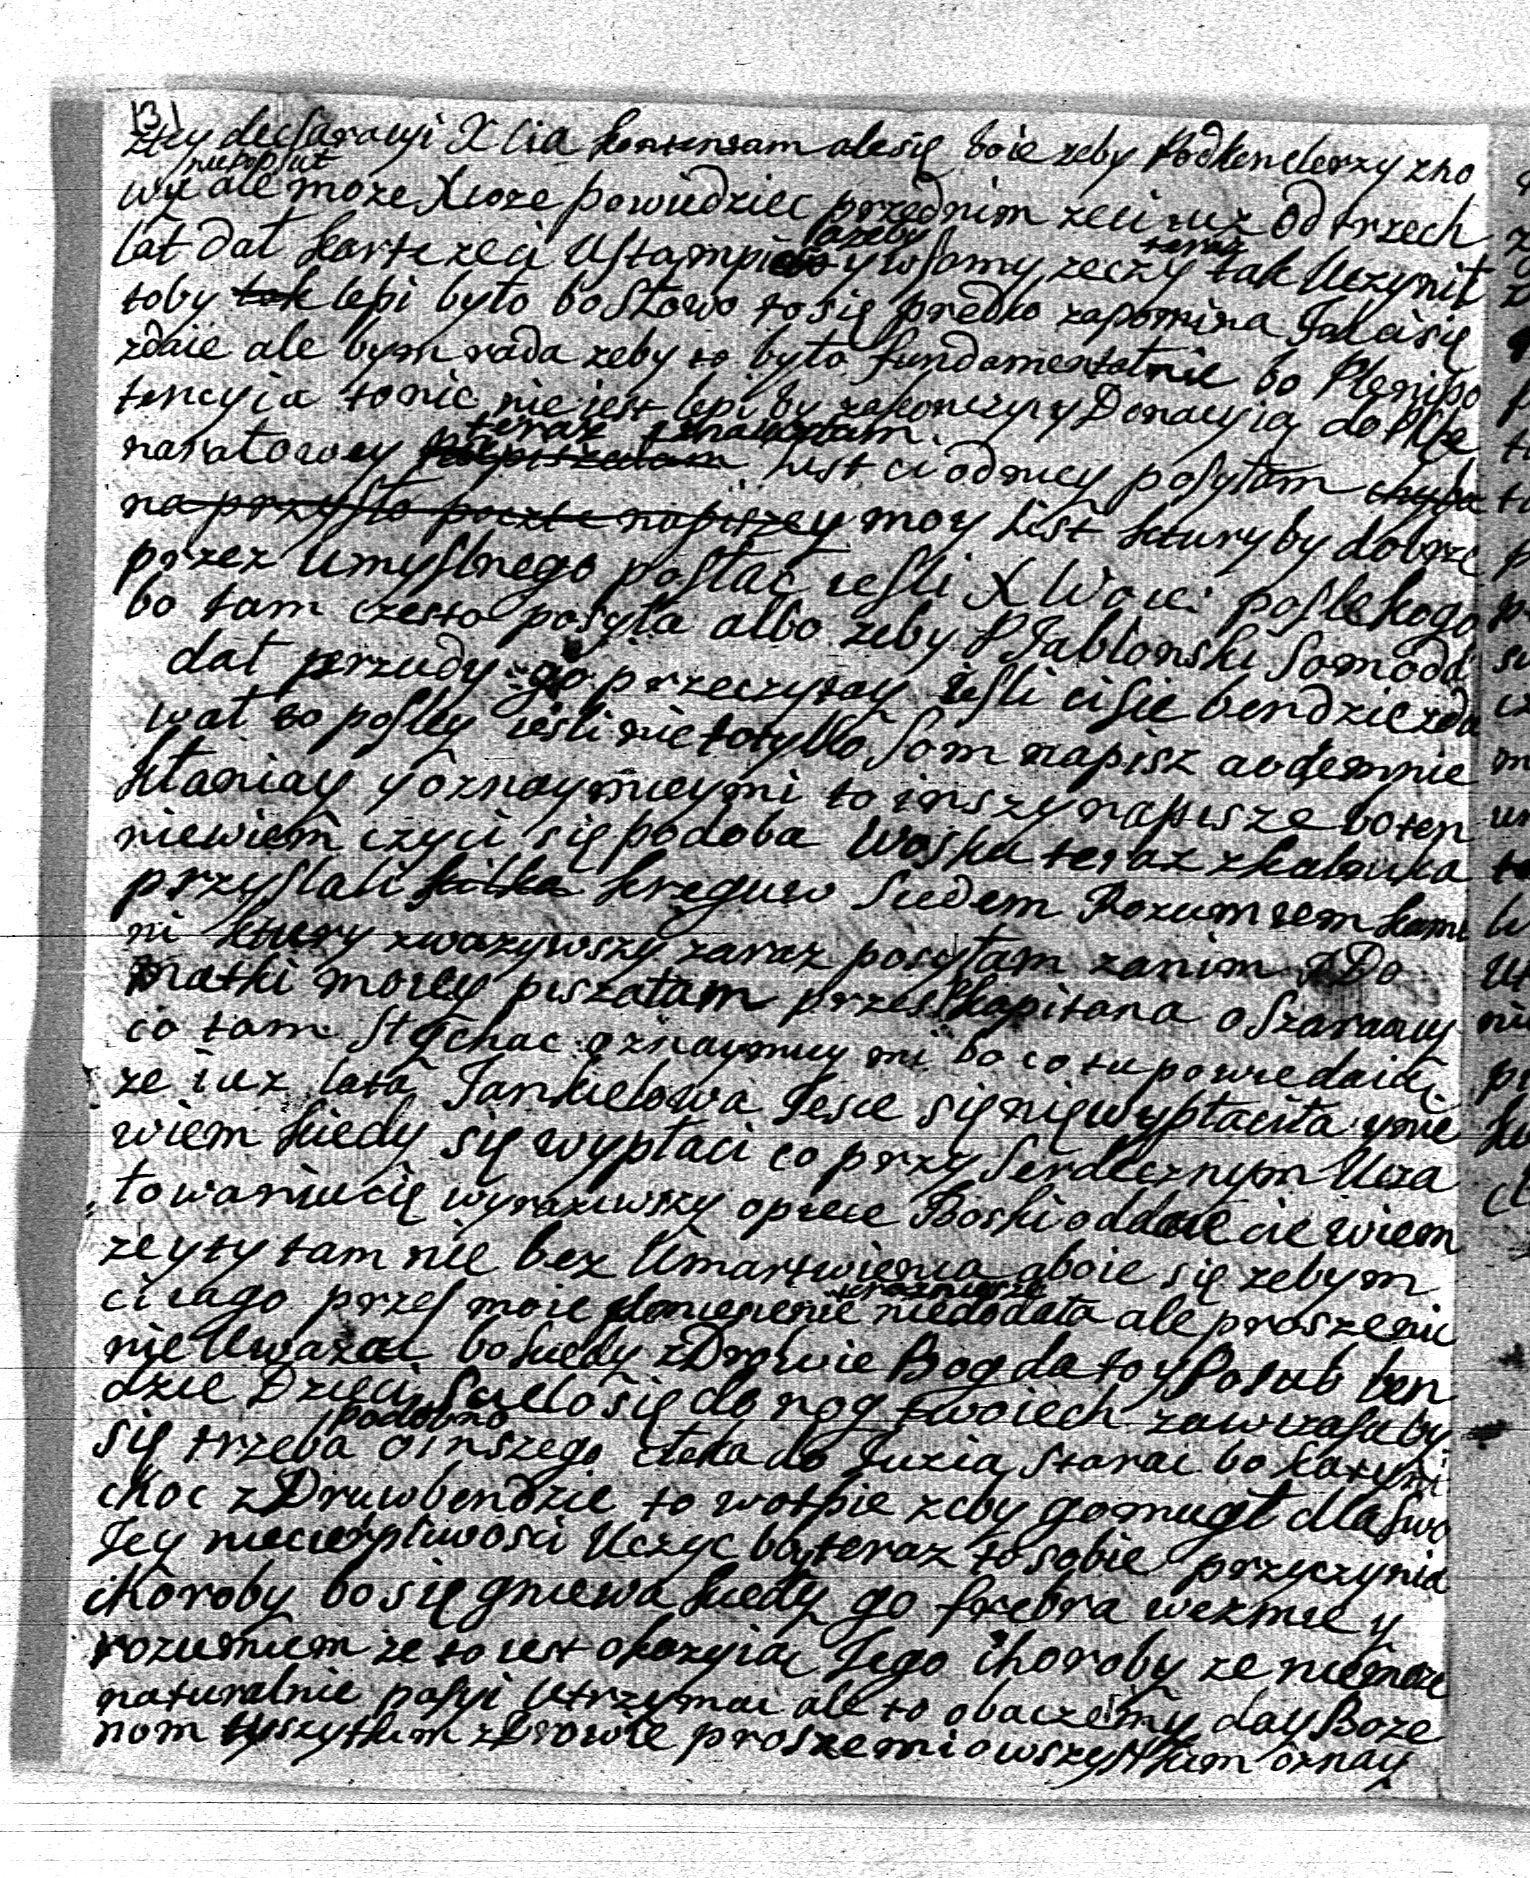 131
z tey declaracyi X Cia kontentam ale się boie zeby Podkenclerzy z ho
niepoplut
wy ale moze Xioze powiedziec przednim zeci iuz od trzech
lat dał karte zeci Ustampi y w samy rzeczy tak Uczynił
azeby teraz
toby tak lepi było bo słowo to się prędko zapomina Jak ci się
zdaie ale bym rada zeby to było fundamentalnie bo Plenipo
tencyia to nic nie iest lepi by zakonczyc y Donacyią do
teraz
naratowey List ci od niey posyłam chyba
na przyszło poczte napisze y moy List ktury by dobrze
przez Umyslnego posłac iesli X Woiei posle kogo
bo tam czesto posyła albo zeby P Jablonski som odd
dał przudy go przeczytay iesli ci sie bendzie zda
wał to posley iesli nie to tylko som napisz a odemnie
kłaniay y oznaymuey mi to inszy napisze bo ten
niewiem czy ci się podoba Woska teraz z
przyslali kilka kreguw Siedem Rozumiem kami
ni ktury zwazywszy zaraz posyłam zanim Do
Matki moiey piszałam przes kapitana o
co tam Słychac oznaymuy mi bo co tu powiedaią
ze iuz lata Jankielowa Jesce się nie wypłaciła y nie
wiem kiedy się wypłaci co przy Serdecznym Uca
łowaniu cię wyraziwszy opiece Boski oddaie cie wiem
ze y ty tam nie bez Umartwienia a boie się zebym
teraznieysze
ci iago przes moie niedodała ale prosze nic
nie Uwazai bo kiedy zDrowie Bog da to y Posub ben
dzie Dzieci Sciello się do nog twoiech zawczasu by
podobno
się trzeba o inszego człeka do Juzia starai bo
choc zDruw bendzie to wotpie zeby go mugł dla swo
Jey niecierpliwosci Uczyc by teraz to sobie przyczynia
choroby bo się gniewa kiedy go frebra wezmie y
rozumiem ze to iest okazyią Jego choroby ze nie moze
naturalnie pasyi Utrzymai ale to obaczemy day Boze
nom wszytkim zDrowie prosze mi o wszystkim oznay